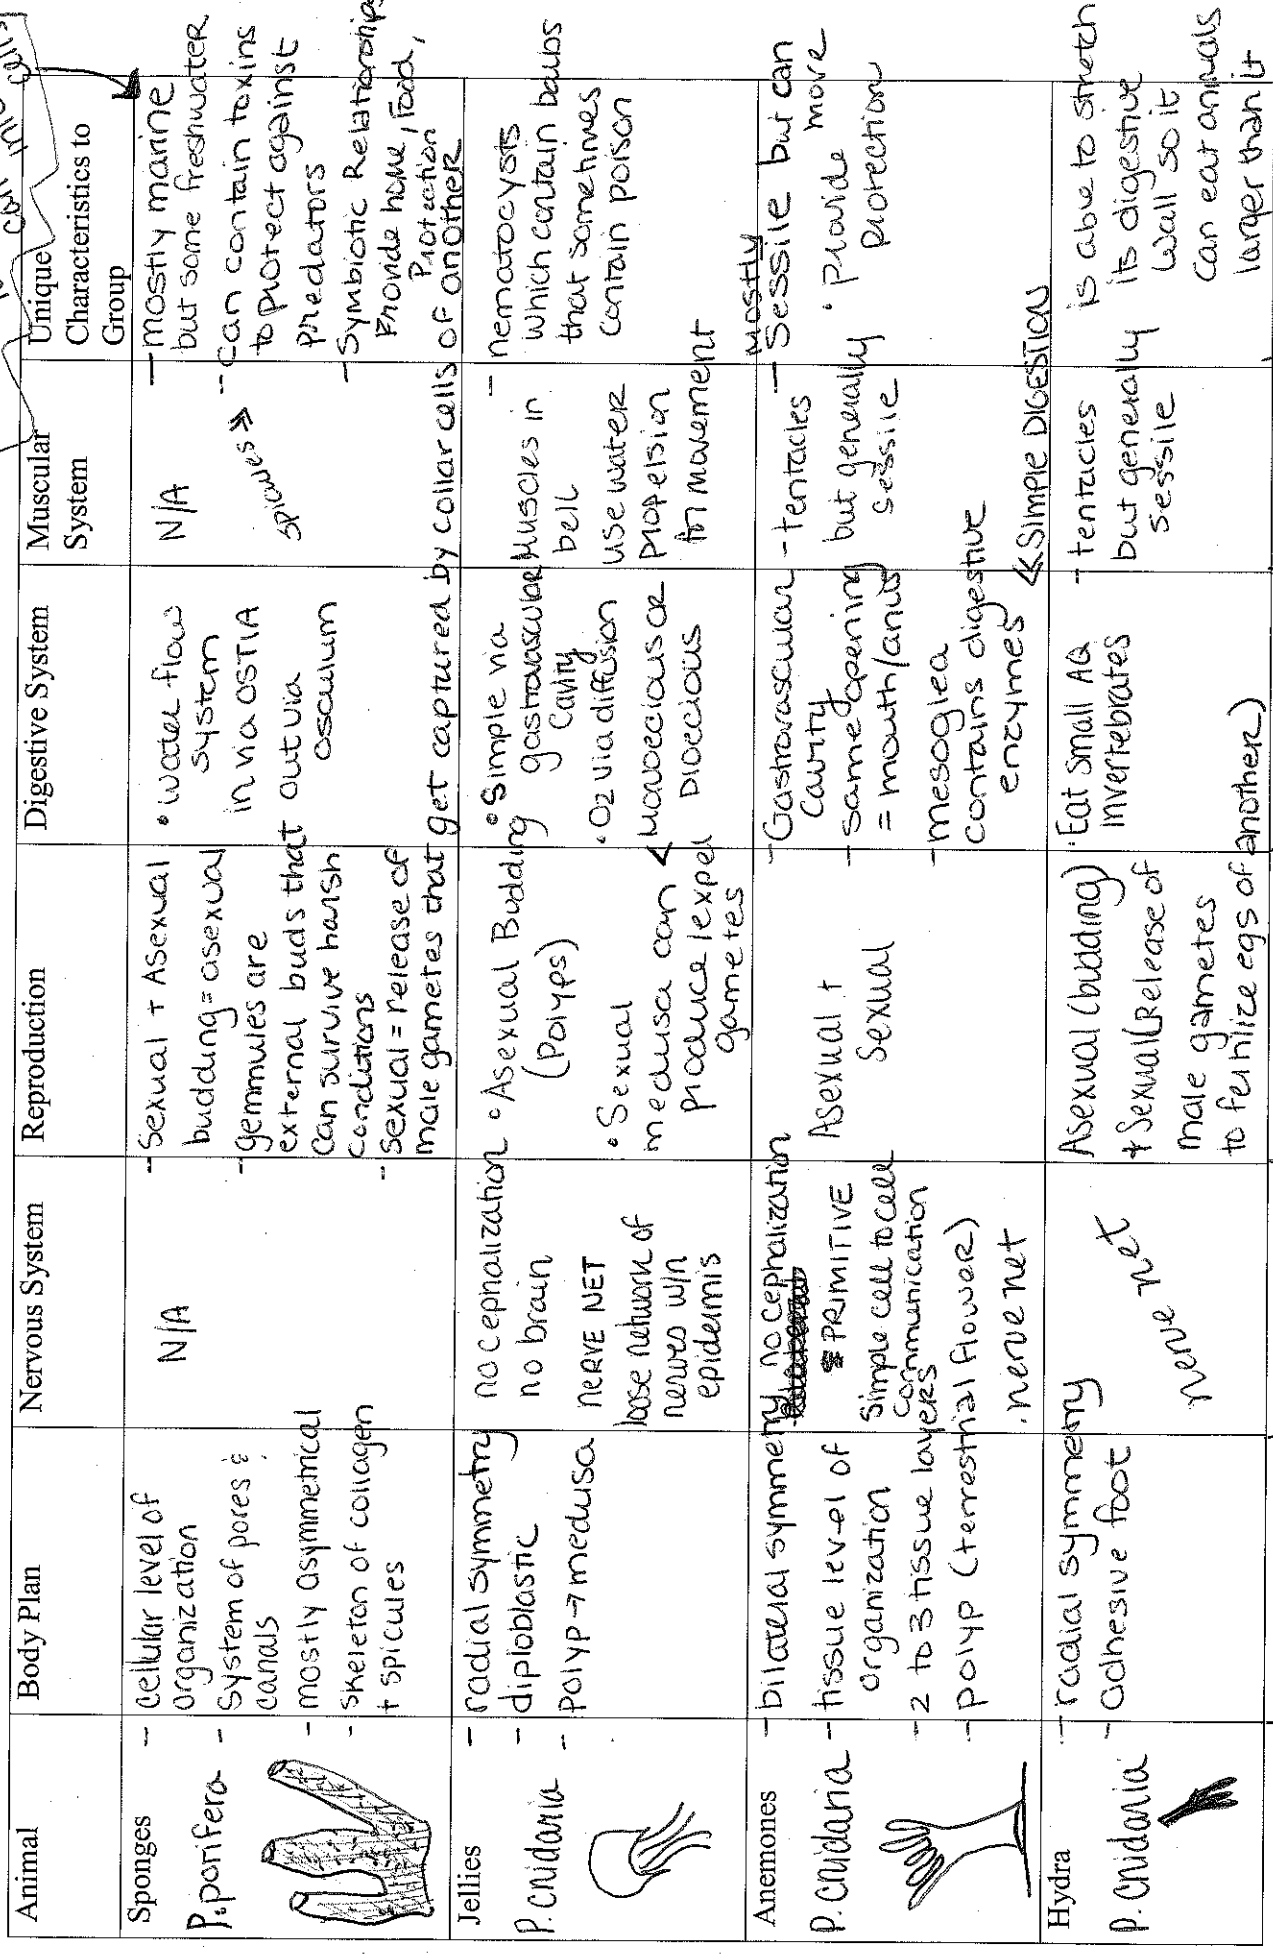 can into cells
Animal
Body Plan
Nervous System
Reproduction
Digestive System
Muscular
System
Unique
Characteristics to
Group
Sponges
P. porifera
- cellular level of
organization
- System of pores &
canals
- mostly asymmetrical
- skeleton of collagen
+ spicules
N/A
- Sexual + Asexual
budding = asexual
- gemmules are
external buds that
can survive harsh
conditions
- sexual = release of
male gametes that get captured by collar cells of another
• water flow
system
in via OSTIA
out via
osculum
N/A
spicules >>
- mostly marine
but some freshwater
- can contain toxins
to protect against
predators
- Symbiotic Relationships
Provide home, Food,
Protection
Jellies
P. cnidaria
- radial symmetry
- diploblastic
- polyp → medusa
no cephalization
no brain
NERVE NET
loose network of
nerves w/n
epidermis
• Asexual Budding
(Polyps)
• Sexual
medusa can
produce/expel
gametes
< Monoecious or
Dioecious
• Simple via
gastrovascular
cavity
• O2 via diffusion
Muscles in
bell
use water
propelsion
for movement
- nematocysts
which contain barbs
that sometimes
contain poison
Anemones
P. cnidaria
- bilateral symmetry
- tissue level of
organization
- 2 to 3 tissue layers
- polyp (terrestrial flower)
no cephalization
PRIMITIVE
simple cell to cell
communication
. nerve net
Asexual +
Sexual
- Gastrovascular
cavity
- same opening
= mouth/anus
- mesoglea
contains digestive
enzymes
<< SIMPLE DIGESTION
- tentacles
but generally
sessile
mostly
- Sessile but can
• provide more
protection
Hydra
P. cnidaria
- radial symmetry
- adhesive foot
nerve net
Asexual (budding)
+ Sexual (Release of
male gametes
to fertilize egs of another)
• Eat small AQ
invertebrates
- tentacles
but generally
sessile
is able to stretch
its digestive
wall so it
can eat animals
larger than it